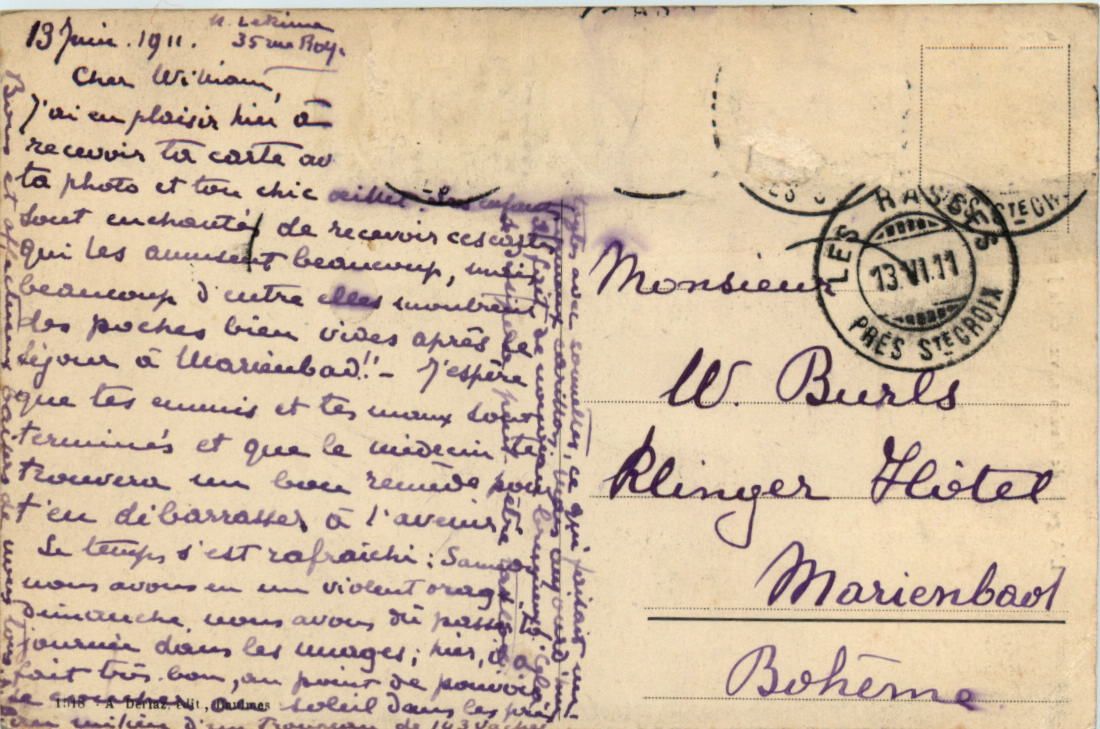 13 Juin. 1911.
35 rue Roy.
Cher William,
J'ai eu plaisir hier à
recevoir ta carte av
ta photo et ton chic œillet. Les enfants
sont enchantés de recevoir ces cartes
qui les amusent beaucoup, mais
beaucoup d'entre elles montrent
des poches bien vides après le
séjour à Marienbad!! - J'espère
que tes ennuis et tes maux sont
terminés et que le médecin te
trouvera un bon remède pour
t'en débarrasser à l'avenir
Le temps s'est rafraîchi: Samedi
nous avons eu un violent orage
dimanche nous avons dû passer la
journée dans les nuages; hier, il a
fait très bon, au point de pouvoir
se coucher au soleil dans les prés
au milieu d'un troupeau de 143 vaches
toutes avec sonnettes, ce qui faisait un
fameux carillon.
Bons et affectueux baisers de nous tous
1518 A Dériaz, édit., Baulmes
LES RASSES
13.VI.11
PRÈS STE CROIX
Monsieur
W. Burls
Klinger Hôtel
Marienbad
Bohème